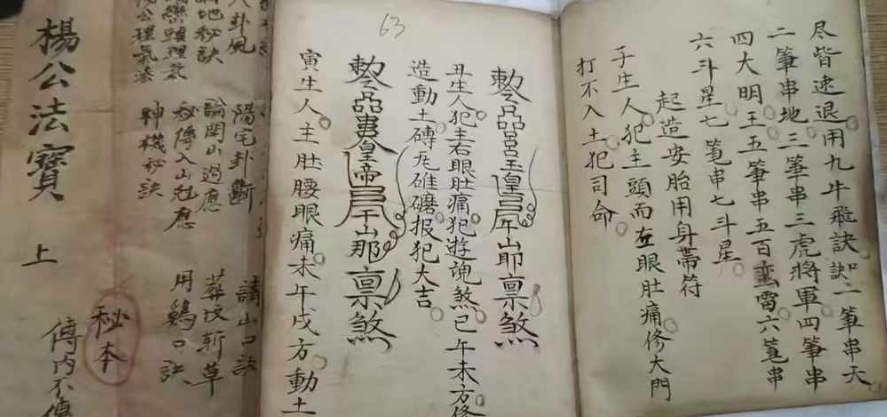 尽皆速退用九牛飛訣訣一筆串天
二筆串地三筆串三虎將軍四筆串
四大明王五筆串五百蛮雷六筆串
六斗星七筆串七斗星
起造安胎用身帶符
子生人犯主頭而左眼肚痛修大門
打不入土犯司命
63
玉皇
丑生人犯主右眼肚痛犯遊魂煞巳午未方修
造動土磚瓦碓磨报犯大吉
皇帝
寅生人主肚腰眼痛未午戌方動土
請山口訣
葬坟斬草
用鷄口訣
陽宅卦斷
論関山過應
秘傳入山尅應
神機秘訣
八卦風
地秘訣
巒頭理氣
公理氣法
秘本
傳内不傳
楊公法寶 上